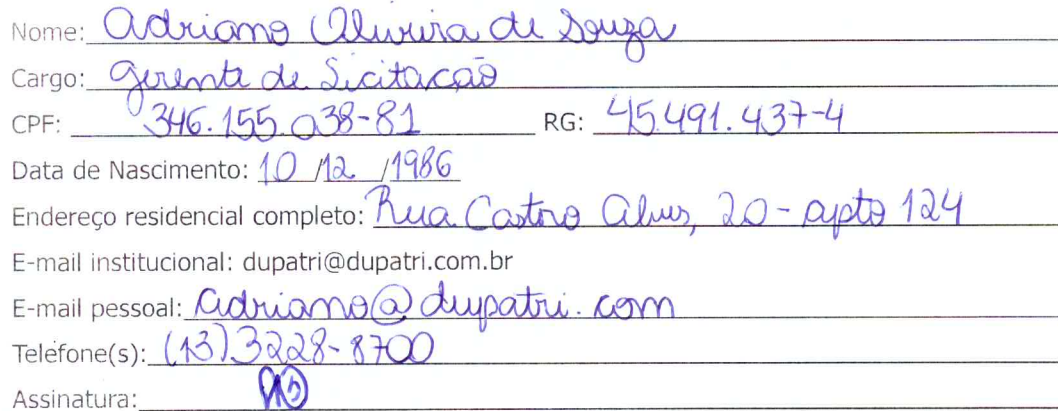 Nome: Adriano Oliveira de Souza
Cargo: Gerente de Licitação
CPF: 346.155.038-81 RG: 45.491.437-4
Data de Nascimento: 10 /12 /1986
Endereço residencial completo: Rua Castro Alves, 20 - apto 124
E-mail institucional: dupatri@dupatri.com.br
E-mail pessoal: adriano@dupatri.com
Telefone(s): (13) 3228-8700
Assinatura: